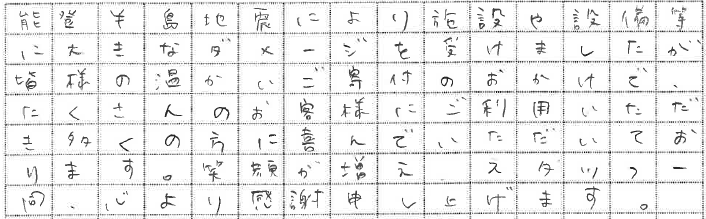 能登半島地震により施設や設備等
に大きなダメージを受けましたが
皆様の温かいご寄付のおかげで、
たくさんのお客様にご利用いただ
き多くの方に喜んでいただいてお
ります。笑顔が増え、スタッフ一
同、心より感謝申し上げます。